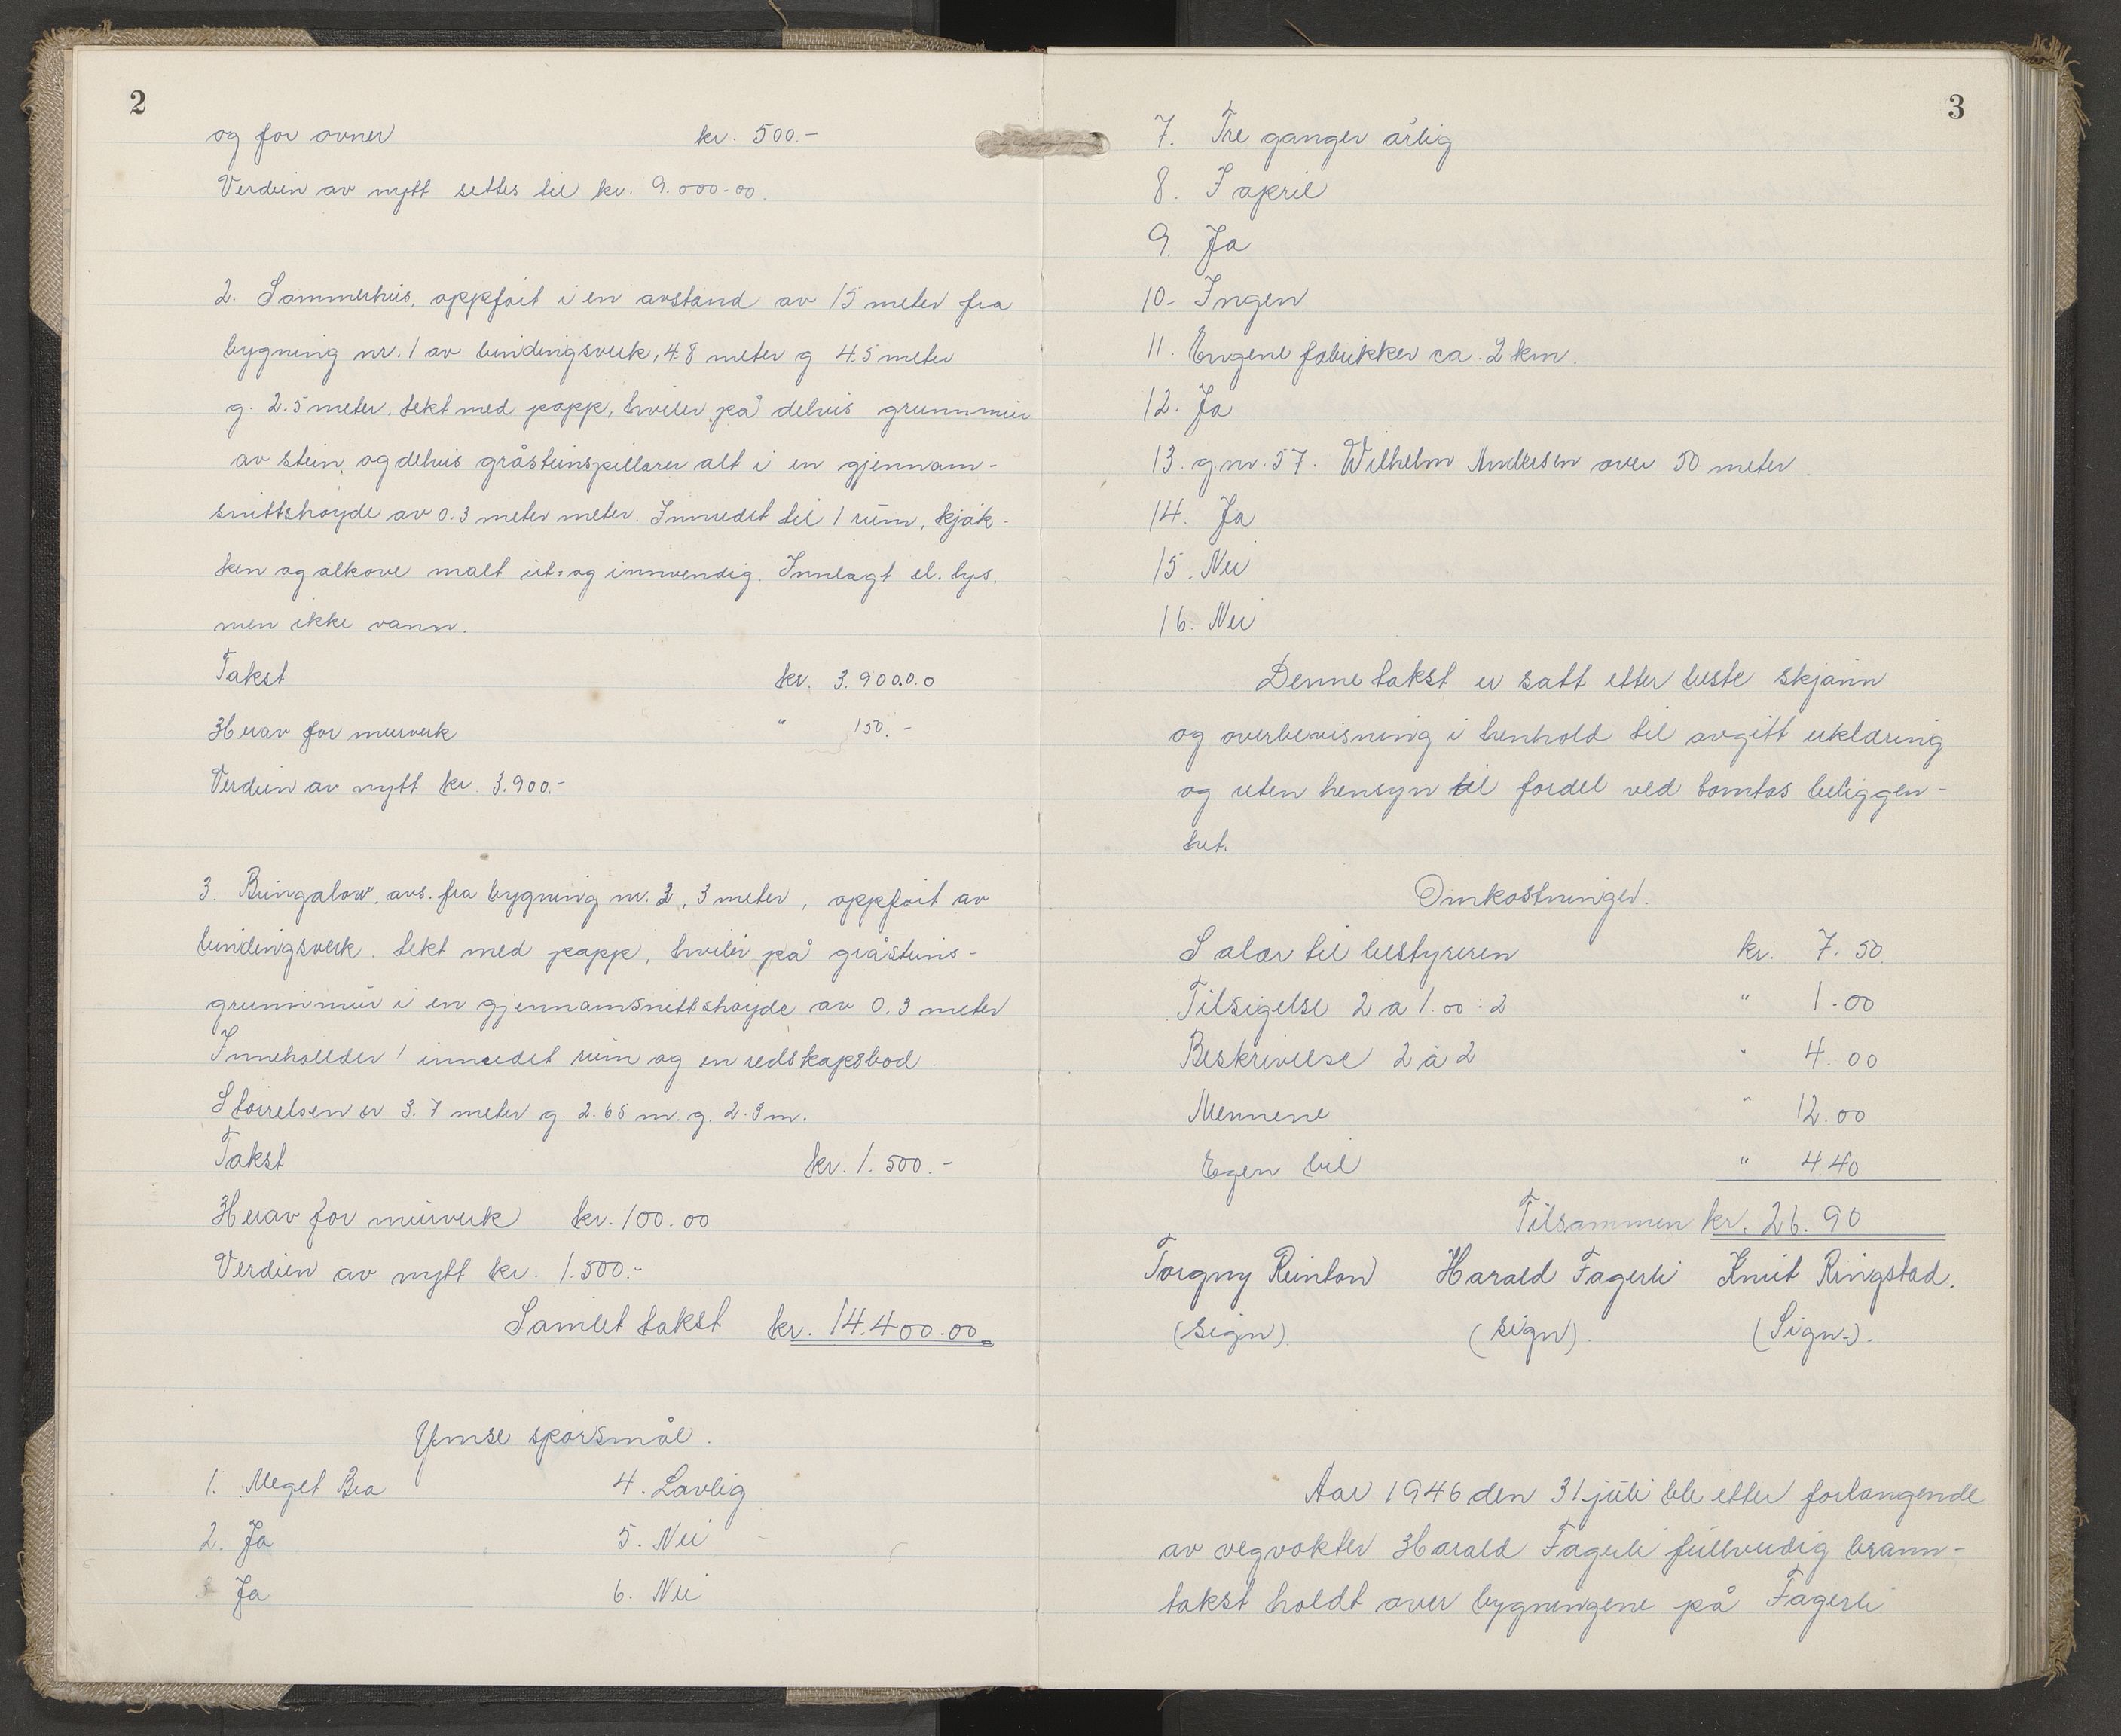 2
og for ovner kr. 500.-
Verdien av nytt settes til kr. 9.000-00.
2. Sommerhus, oppført i en avstand av 15 meter fra
bygning nr. 1 av bindingsverk, 4.8 meter g 4.5 meter
g. 2.5 meter. tekt med papp, hviler på delvis grunnmur
av stein. og delvis gråsteinspillarer alt i en gjennom-
snittshøyde av 0.3 meter meter. Innredet til 1 rum, kjøk-
ken og alkove malt ut- og innvendig. Innlagt el. lys.
men ikke vann.
Takst kr. 3.900.0.0
Herav for murverk " 150.-
Verdien av nytt kr. 3.900.-
3. Bungalow. avs. fra bygning nr. 2, 3 meter, oppført av
bindingsverk. tekt med papp, hviler på gråsteins-
grunnmur i en gjennomsnittshøyde av 0.3 meter
Inneholder 1 innredet rum og en redskapsbod.
Støirelsen er 3.7 meter g. 2.65 m. g. 2.3 m.
Takst kr. 1.500.-
Herav for murverk kr. 100.00
Verdien av nytt kr. 1.500.-
Samlet takst kr. 14.400.00
Ymse spørsmål.
1. Meget Bra 4. Lovlig
2. Ja 5. Nei
Ja 6. Nei
3
7. Tre ganger årlig
8. I april
9. Ja
10- Ingen
11. Engene fabrikker ca. 2 km.
12. Ja
13. g.nr. 57. Wilhelm Andersen over 50 meter.
14. Ja
15. Nei
16. Nei
Denne takst er satt etter beste skjønn
og overbevisning i henhold til avgitt erklæring
og uten hensyn til fordel ved tomtas beliggen-
het.
Omkostninger.
Salær til bestyreren kr. 7.50
Tilsigelse 2 a 1.00 : 2 " 1.00
Beskrivelse 2 à 2 " 4.00
Mennene " 12.00
Egen bil " 4.40
Tilsammen kr. 26.90
Torgny Reinton Harald Fagerli Knut Ringstad.
(sign). (sign). (Sign.).
Aar 1946 den 31 juli ble etter forlangende
av vegvokter Harald Fagerli fullverdig brann-
takst holdt over bygningene på Fagerli